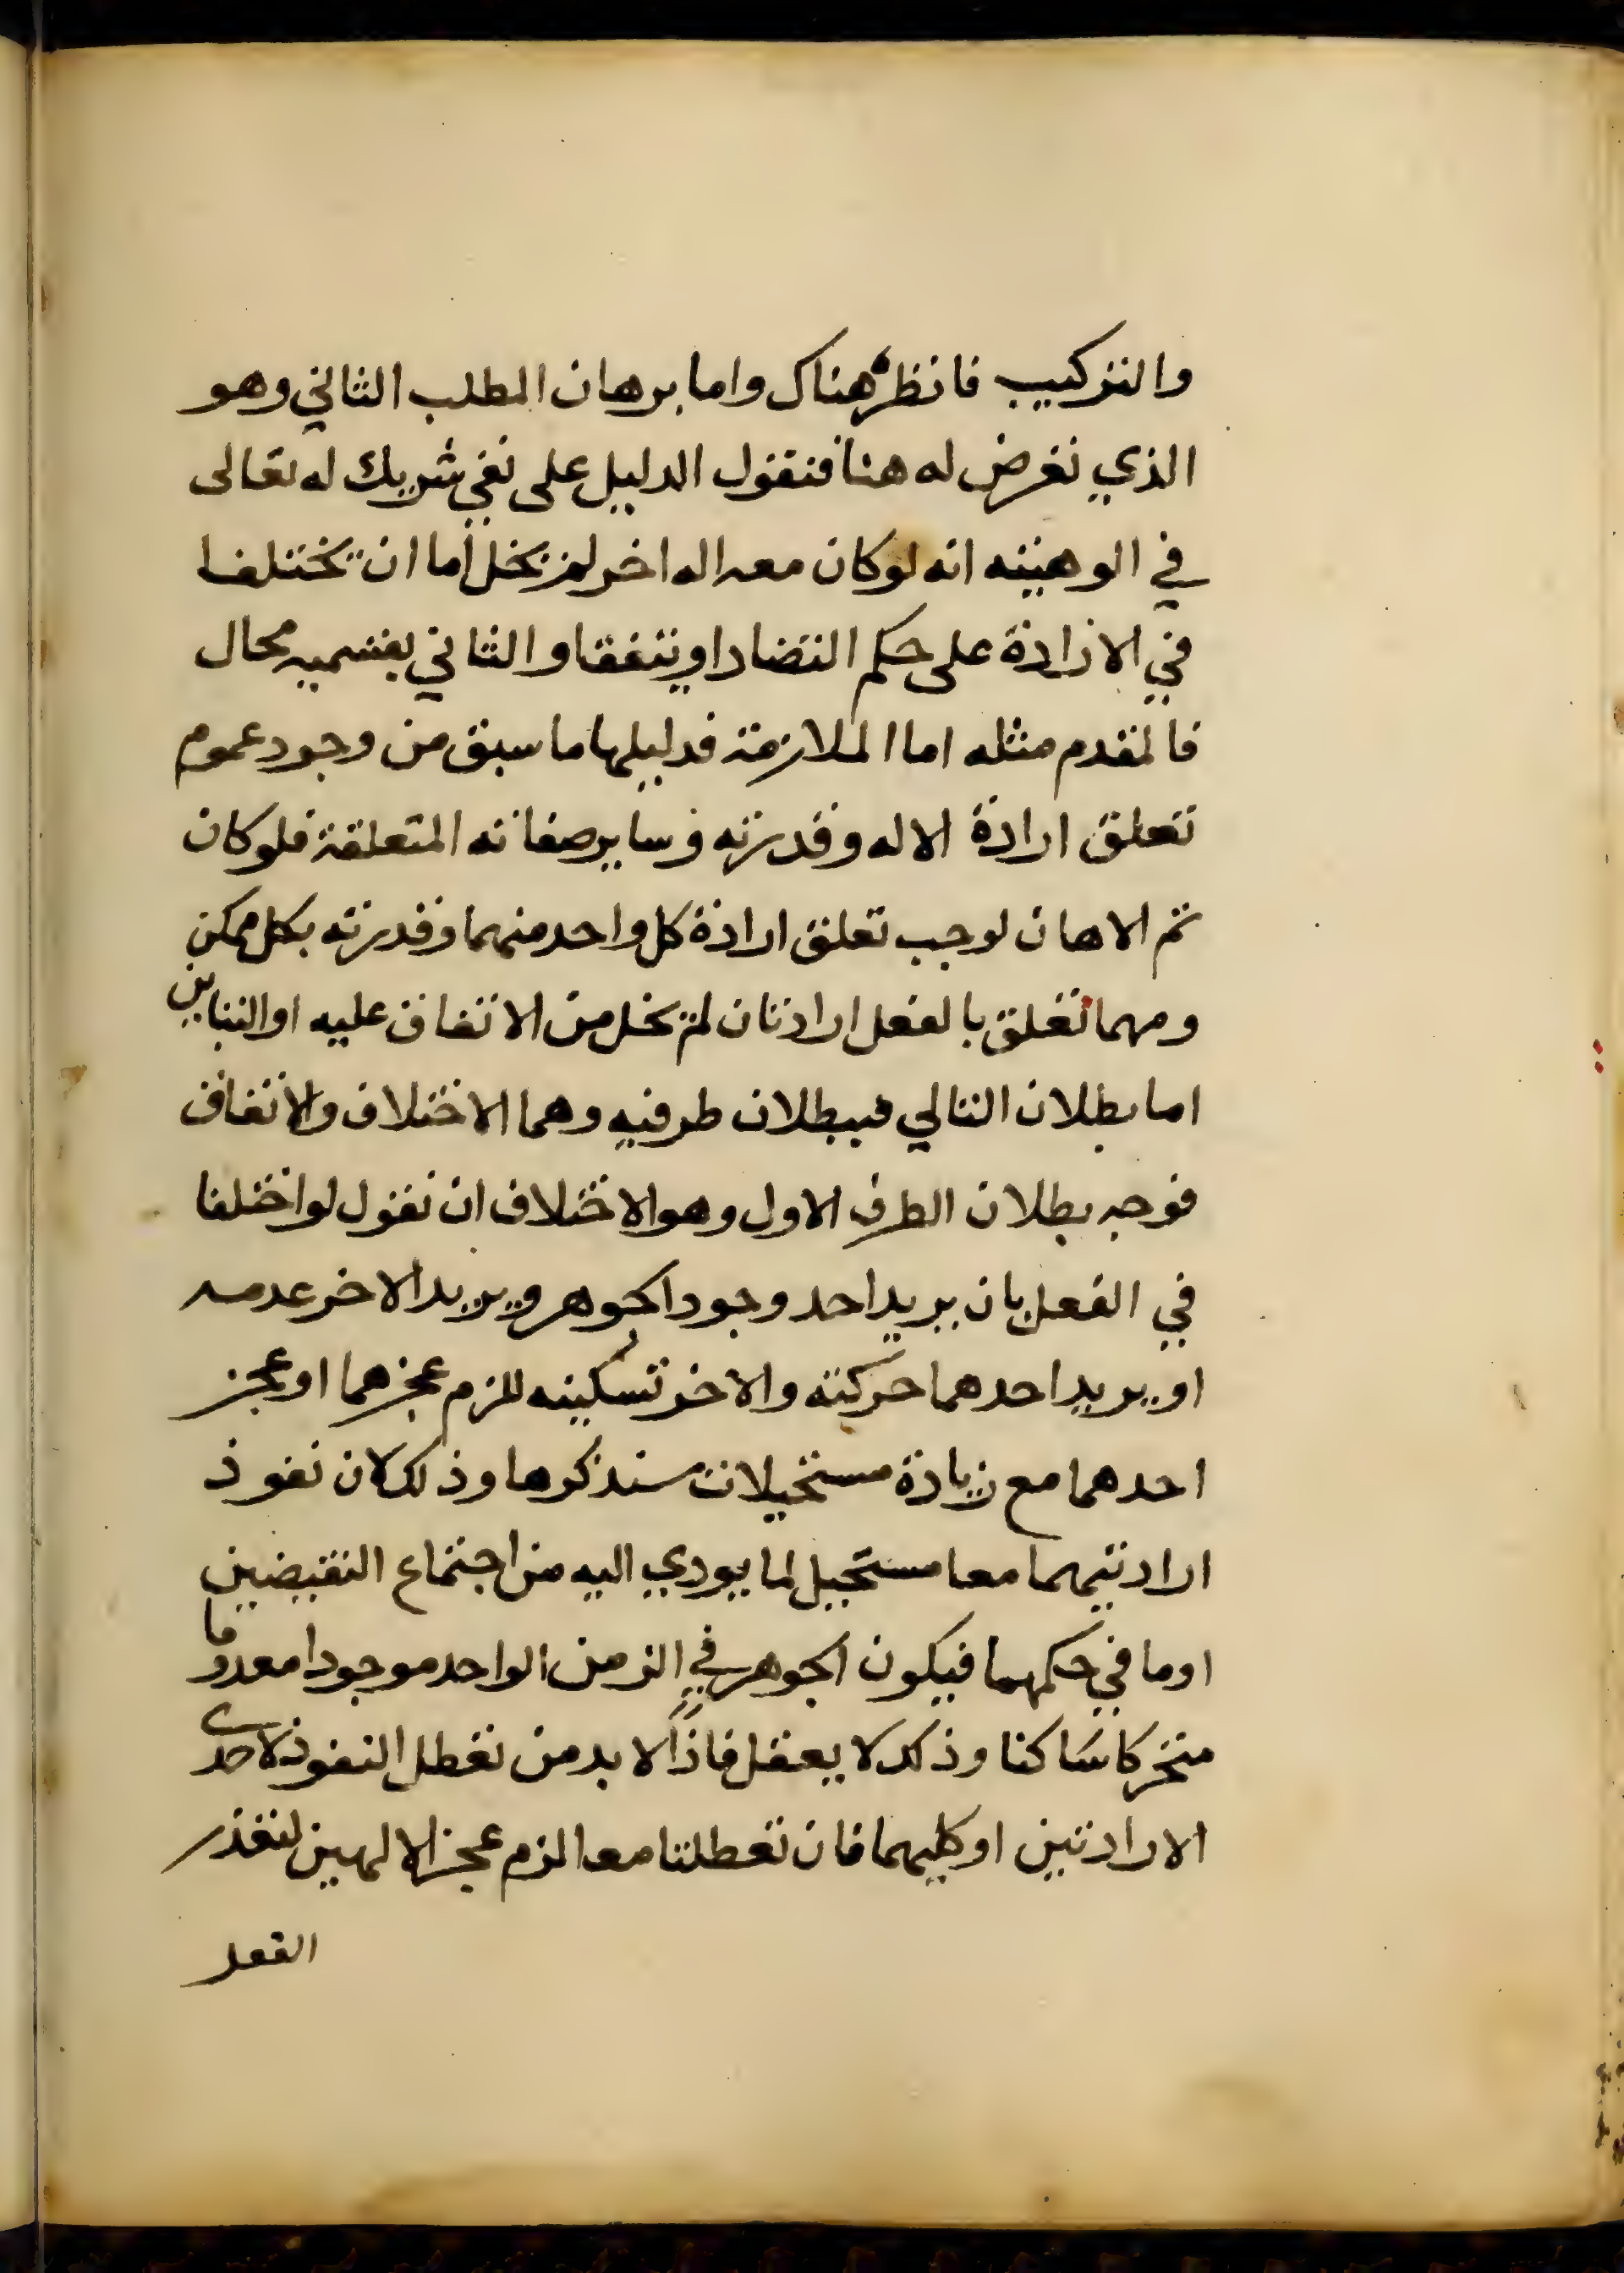 والتركيب فانظره هناك واما برهان المطلب الثاني وهو
الذي تعرض له هنا فنقول الدليل على نفي شريك له تعالى
في الوهيته انه لو كان معه اله اخر لم يخل اما ان يختلفا
في الارادة على حكم التضاد او يتفقا والثاني بقسميه محال
فالمقدم مثله اما الملازمة فدليلها ما سبق من وجود عموم
تعلق ارادة الاله وقدرته وساير صفاته المتعلقة فلو كان
ثم الاهان لوجب تعلق ارادة كل واحد منهما وقدرته بكل ممكن
ومهما تعلق بالفعل ارادتان لم تخل من الاتفاق عليه او التباين
اما بطلان التالي فببطلان طرفيه وهما الاختلاف والاتفاق
فوجه بطلان الطرف الاول وهو الاختلاف ان نقول لو اختلفا
في الفعل بان يريد احد وجود الجوهر ويريد الاخر عدمه
او يريد احدهما حركته والاخر تسكينه للزم عجزهما او عجز
احدهما مع زيادة مستحيلات سنذكرها وذلك لان نفوذ
ارادتيهما معا مستحيل لما يودي اليه من اجتماع النقيضين
او ما في حكمهما فيكون الجوهر في الزمن الواحد موجودا معدوما
متحركا سَاكنا وذلك لا يعقل فاذًا لا بد من تعطل النفوذ لاحدى
الارادتين او كليهما فان تعطلتا معا لزم عجز الالهين لتعذر
الفعل